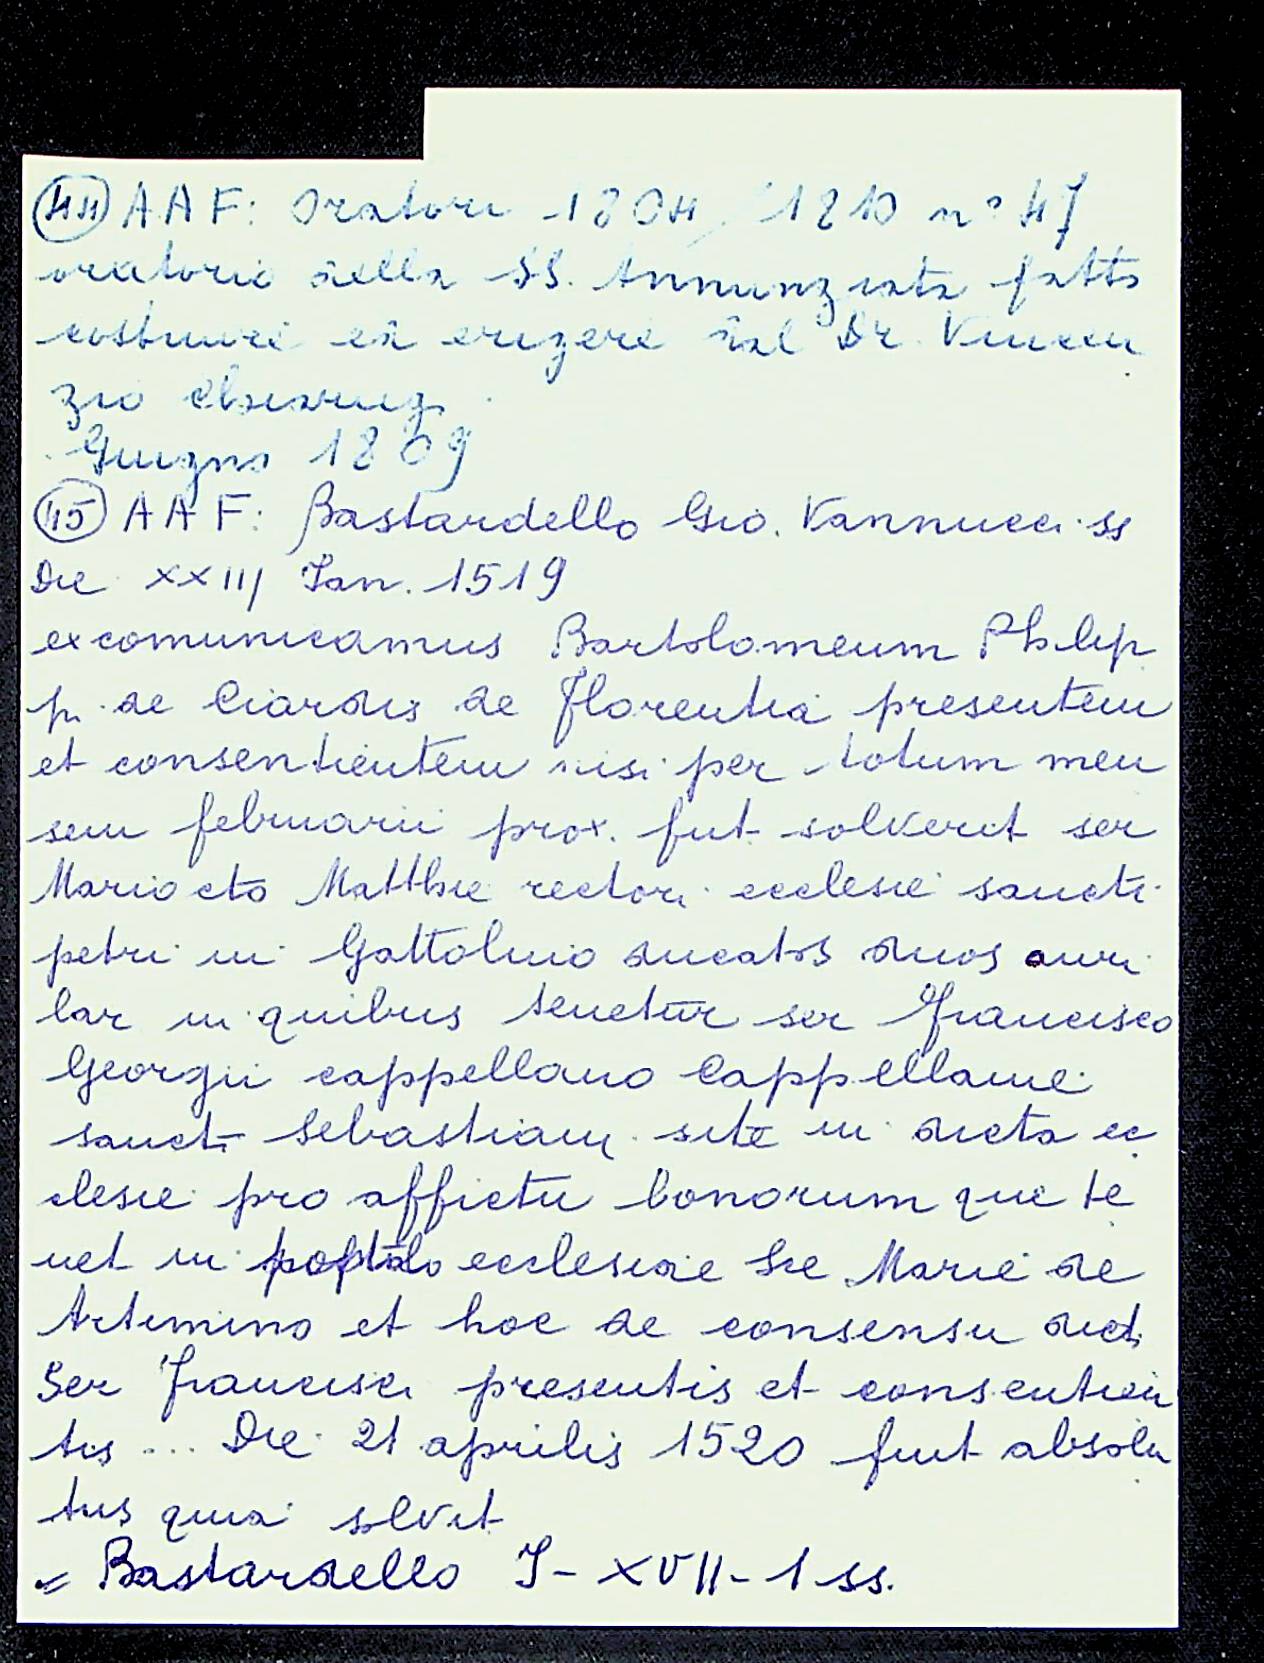 (44) AAF: Oratori 1804, 1810 n° 47
oratorio della SS. Annunziata fatto
costruire ed erigere dal Dr. Vincen
zio Chiarugi
Giugno 1809
(45) AAF: Bastardello Gio. Vannucci ss
Die XXIIJ Ian. 1519
excomunicamus Bartolomeum Philip
pi de Ciardis de Florentia presentem
et consentientem nisi per totum men
sem februarii prox. fut solverit ser
Mariocto Matthie rectori ecclesie sancti
petri in Gattolino ducatos duos auri
lar in quibus tenetur ser Francisco
Georgii cappellano Cappellanie
sancti Sebastiani site in dicta ec
clesie pro affictu bonorum que te
net in ecclesiae Sce Marie de
Artimino et hoc de consensu dicti
Ser Francisci presentis et consentien
tis ... Die 21 aprilis 1520 fuit absolu
tus quia solvit
= Bastardello I - XVII - 1 ss.